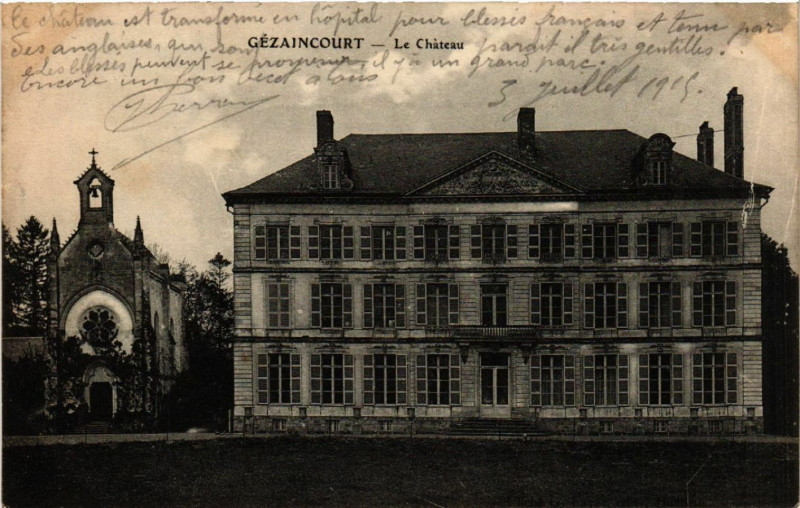 Le château est transformé en hôpital pour blessés français et tenu par
des anglaises, qui sont paraît il très gentilles.
GÉZAINCOURT — Le Château
Les blessés peuvent se promener, il y a un grand parc.
encore un bon
3 Juillet 1915.